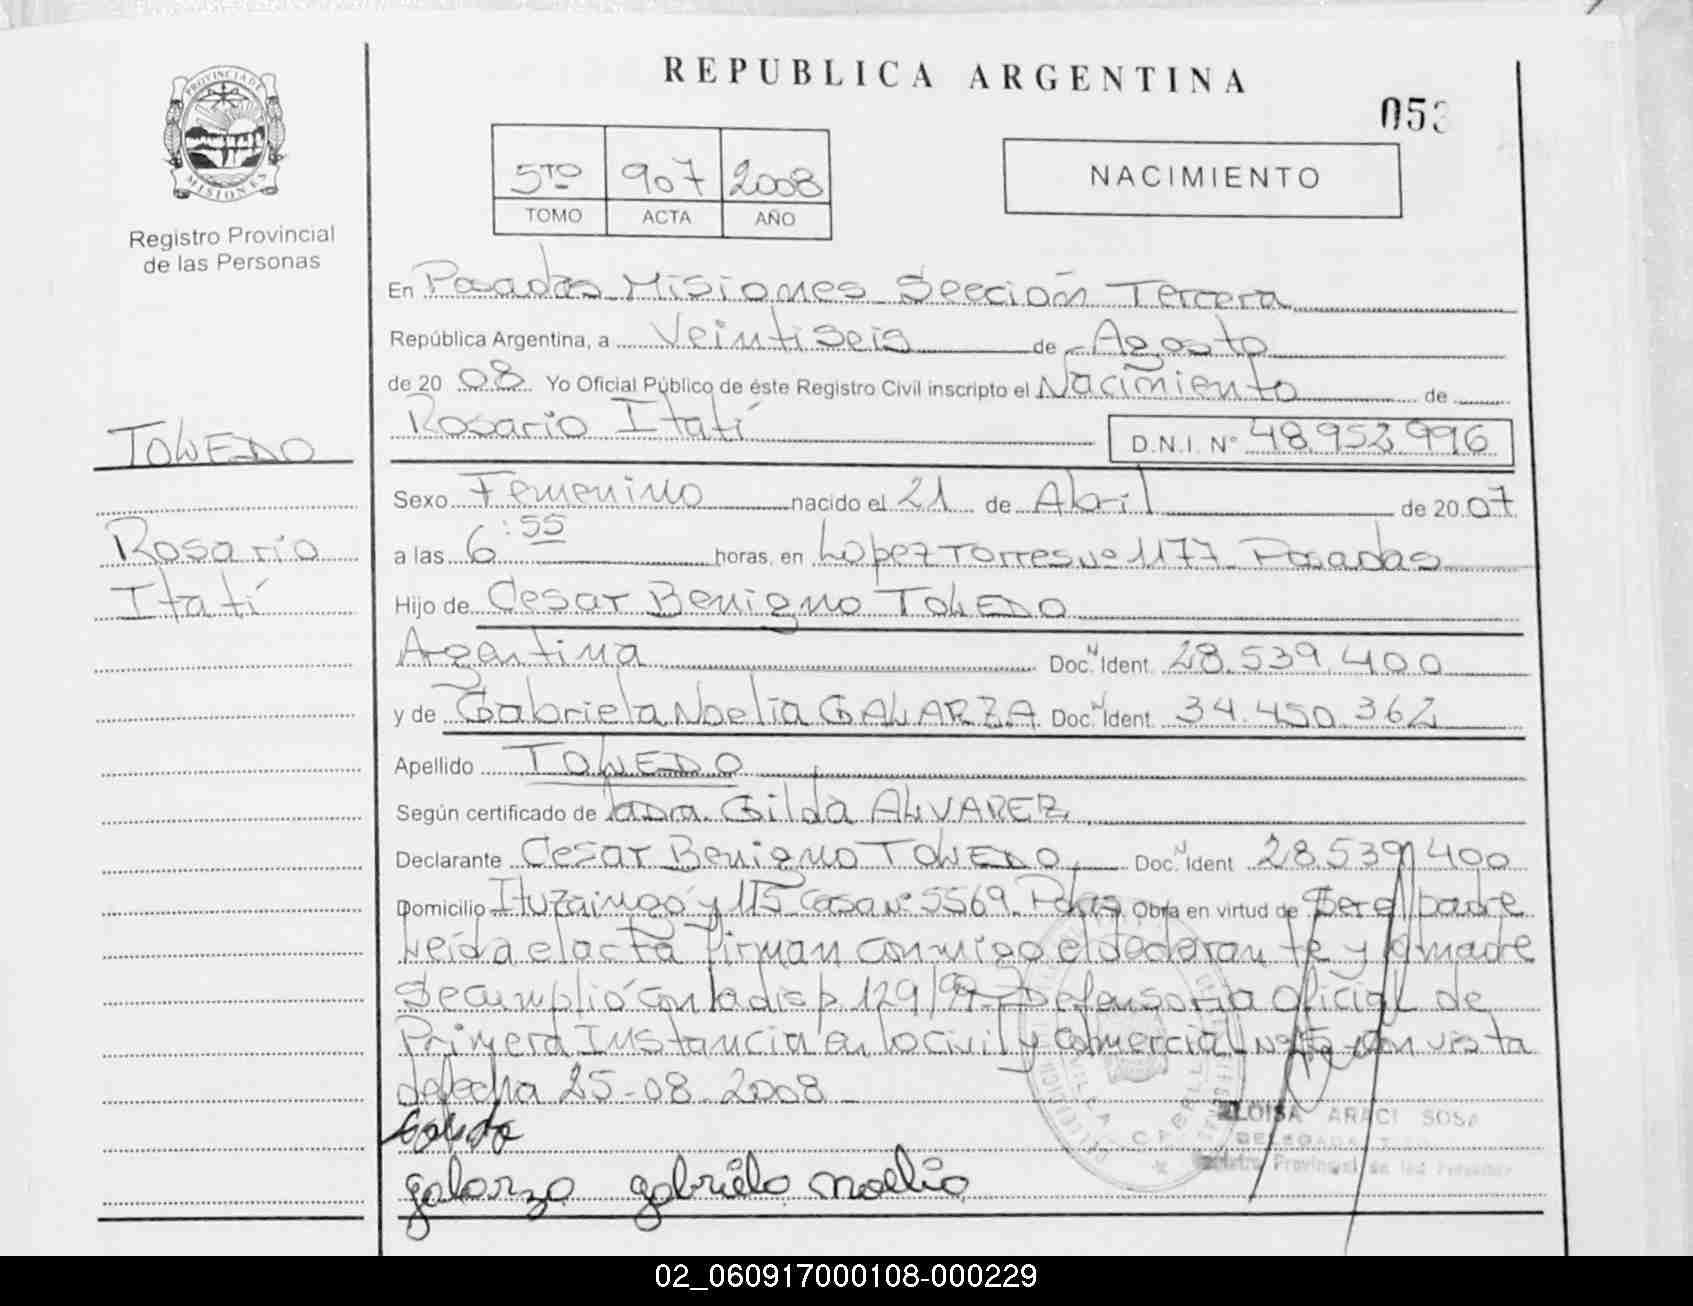 REPUBLICA ARGENTINA
053
PROVINCIA DE
MISIONES
Registro Provincial
de las Personas
5TO 907 2008
TOMO ACTA AÑO
NACIMIENTO
En Posadas Misiones Sección Tercera
República Argentina, a Veintiseis de Agosto
de 20 08 Yo Oficial Público de éste Registro Civil inscripto el Nacimiento de
Rosario Itatí D.N.I. N° 48.952.996
TOLEDO
Rosario
Itatí
Sexo Femenino nacido el 21 de Abril de 20 07
a las 6:55 horas, en Lopez Torres Nº 1177 Posadas
Hijo de Cesar Benigno TOLEDO
Argentina Doc. N Ident. 28.539.400
y de Gabriela Noelia GALARZA Doc. N Ident. 34.450.362
Apellido TOLEDO
Según certificado de Gilda ALVAREZ
Declarante Cesar Benigno TOLEDO Doc. N Ident. 28.539.400
Domicilio Ituzaingó y 115 Casa Nº 5569 Pdas Obra en virtud de Ser el padre
Leída el acta firman conmigo el declarante y la madre
Se cumplió con la disp. 129/97 Defensoria Oficial de
Primera Instancia en lo civil y Comercial con vista
de fecha 25-08-2008
galarza gabriela noelia
VILLA CABELLO
ELOISA ARACI SOSA
DELEGADA
Registro Provincial de las Personas
02_060917000108-000229